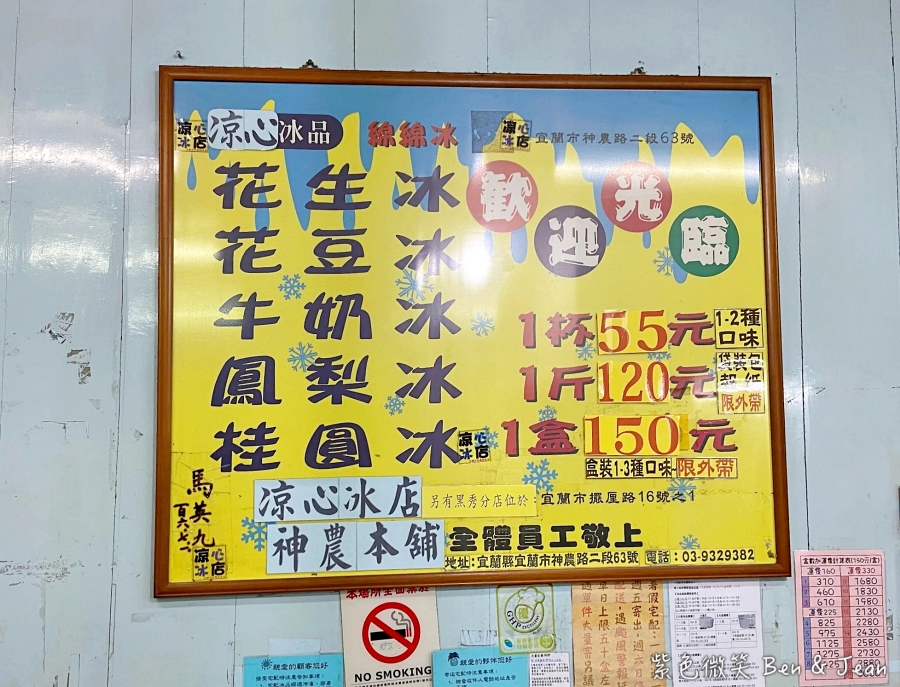 涼心冰店 涼心冰品 綿綿冰 涼心冰店 宜蘭市神農路二段63號
歡迎光臨
花生冰
花豆冰
牛奶冰
鳳梨冰
桂圓冰
1杯55元 1-2種口味
1斤120元 袋裝包報紙 限外帶
1盒150元
盒裝1-3種口味 限外帶
涼心冰店
馬英九
涼心冰店
涼心冰店 另有黑秀分店位於:宜蘭市擺厘路16號之1
神農本舖 全體員工敬上
地址:宜蘭縣宜蘭市神農路二段63號 電話:03-9329382
NO SMOKING
親愛的顧客您好
親愛的夥伴您好
運費160 運費330
310 1680
460 1830
670 1980
運費225 2130
825 2280
975 2430
1125 2580
1275 2730
紫色微笑 Ben & Jean